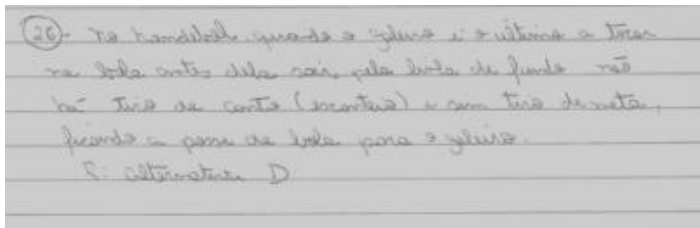 26). No handebol, quando o goleiro é o ultimo a tocar
na bola antes dela sair, pela linha de fundo não
há tiro de canto (escanteio) e sim tiro de meta,
ficando a posse de bola para o goleiro.
R: alternativa D